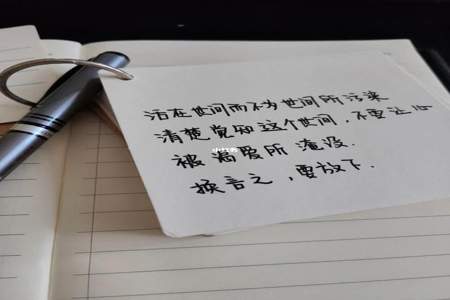 活在世间而不为世间所污染
清楚觉知这个世间，不要让心
被渴爱所淹没.
换言之，要放下.
小红书